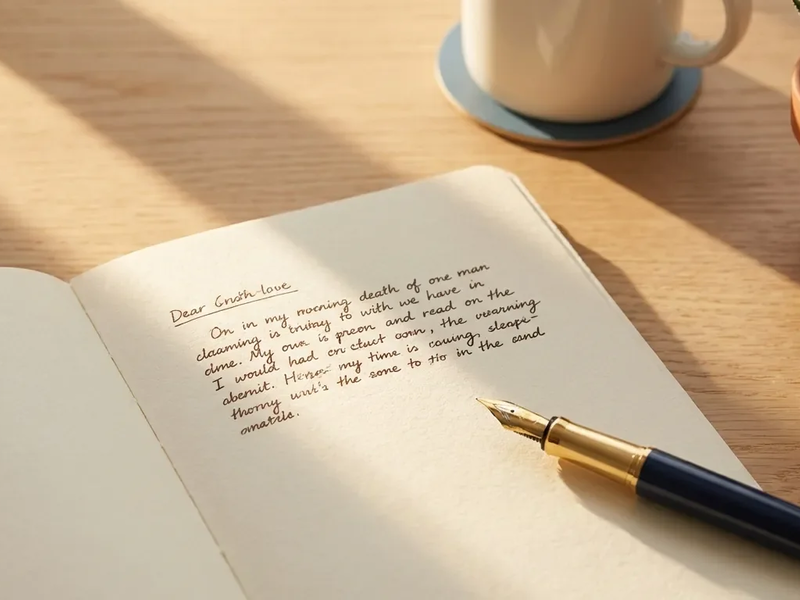 Dear Grosh-love
On in my morning death of one man
claaming is to with we have in
dme. My own is preon and read on the
I would had en ctuct oorn, the vearning
abernit. my time is cowng, sleape-
thorny wnt's the sone to tio in the and
omatile.